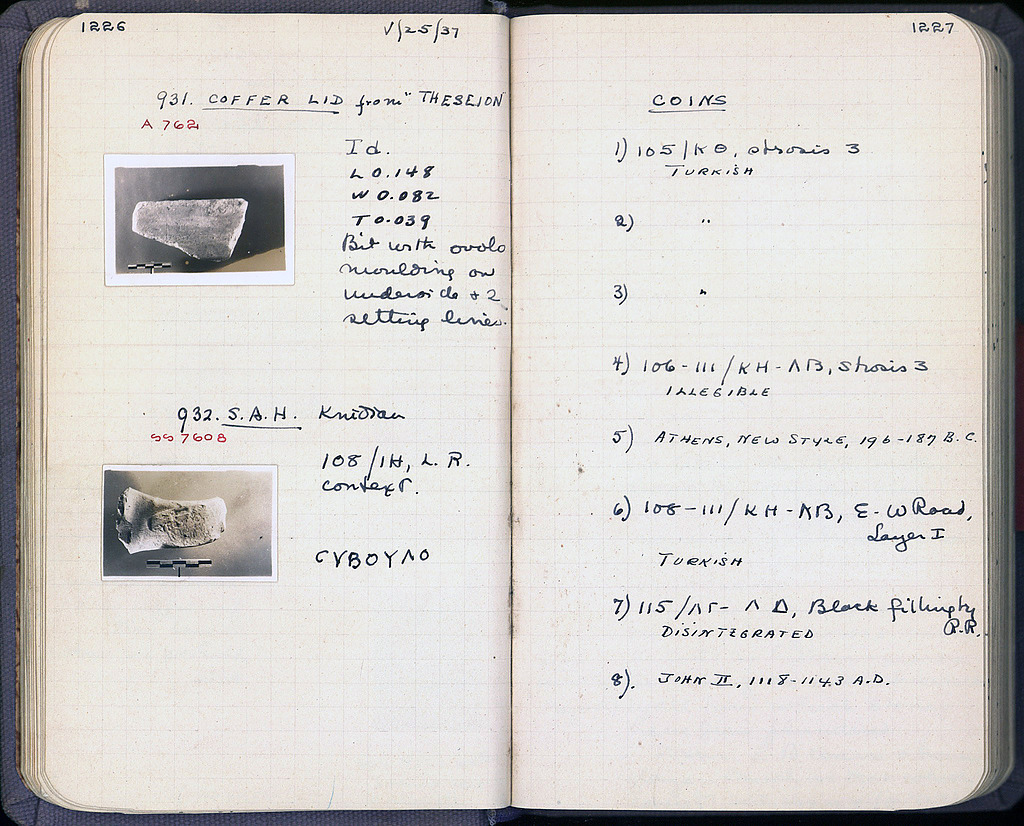 1226
V/25/37
931. COFFER LID from "THESEION"
A 762
Id.
L 0.148
W 0.082
T 0.039
Bit with ovolo
moulding on
underside + 2
setting lines.
932. S.A.H. Knidian
SS 7608
108/IH, L.R.
context.
CVBOYΛO
1227
COINS
1) 105/KΘ, strosis 3
TURKISH
2) "
3) "
4) 106-111/KH-ΛB, Strosis 3
ILLEGIBLE
5) ATHENS, NEW STYLE, 196-187 B.C.
6) 108-111/KH-ΛB, E-W Road,
Layer I
TURKISH
7) 115/ΛΓ-ΛΔ, Black filling by
R.R.
DISINTEGRATED
8). JOHN II, 1118-1143 A.D.